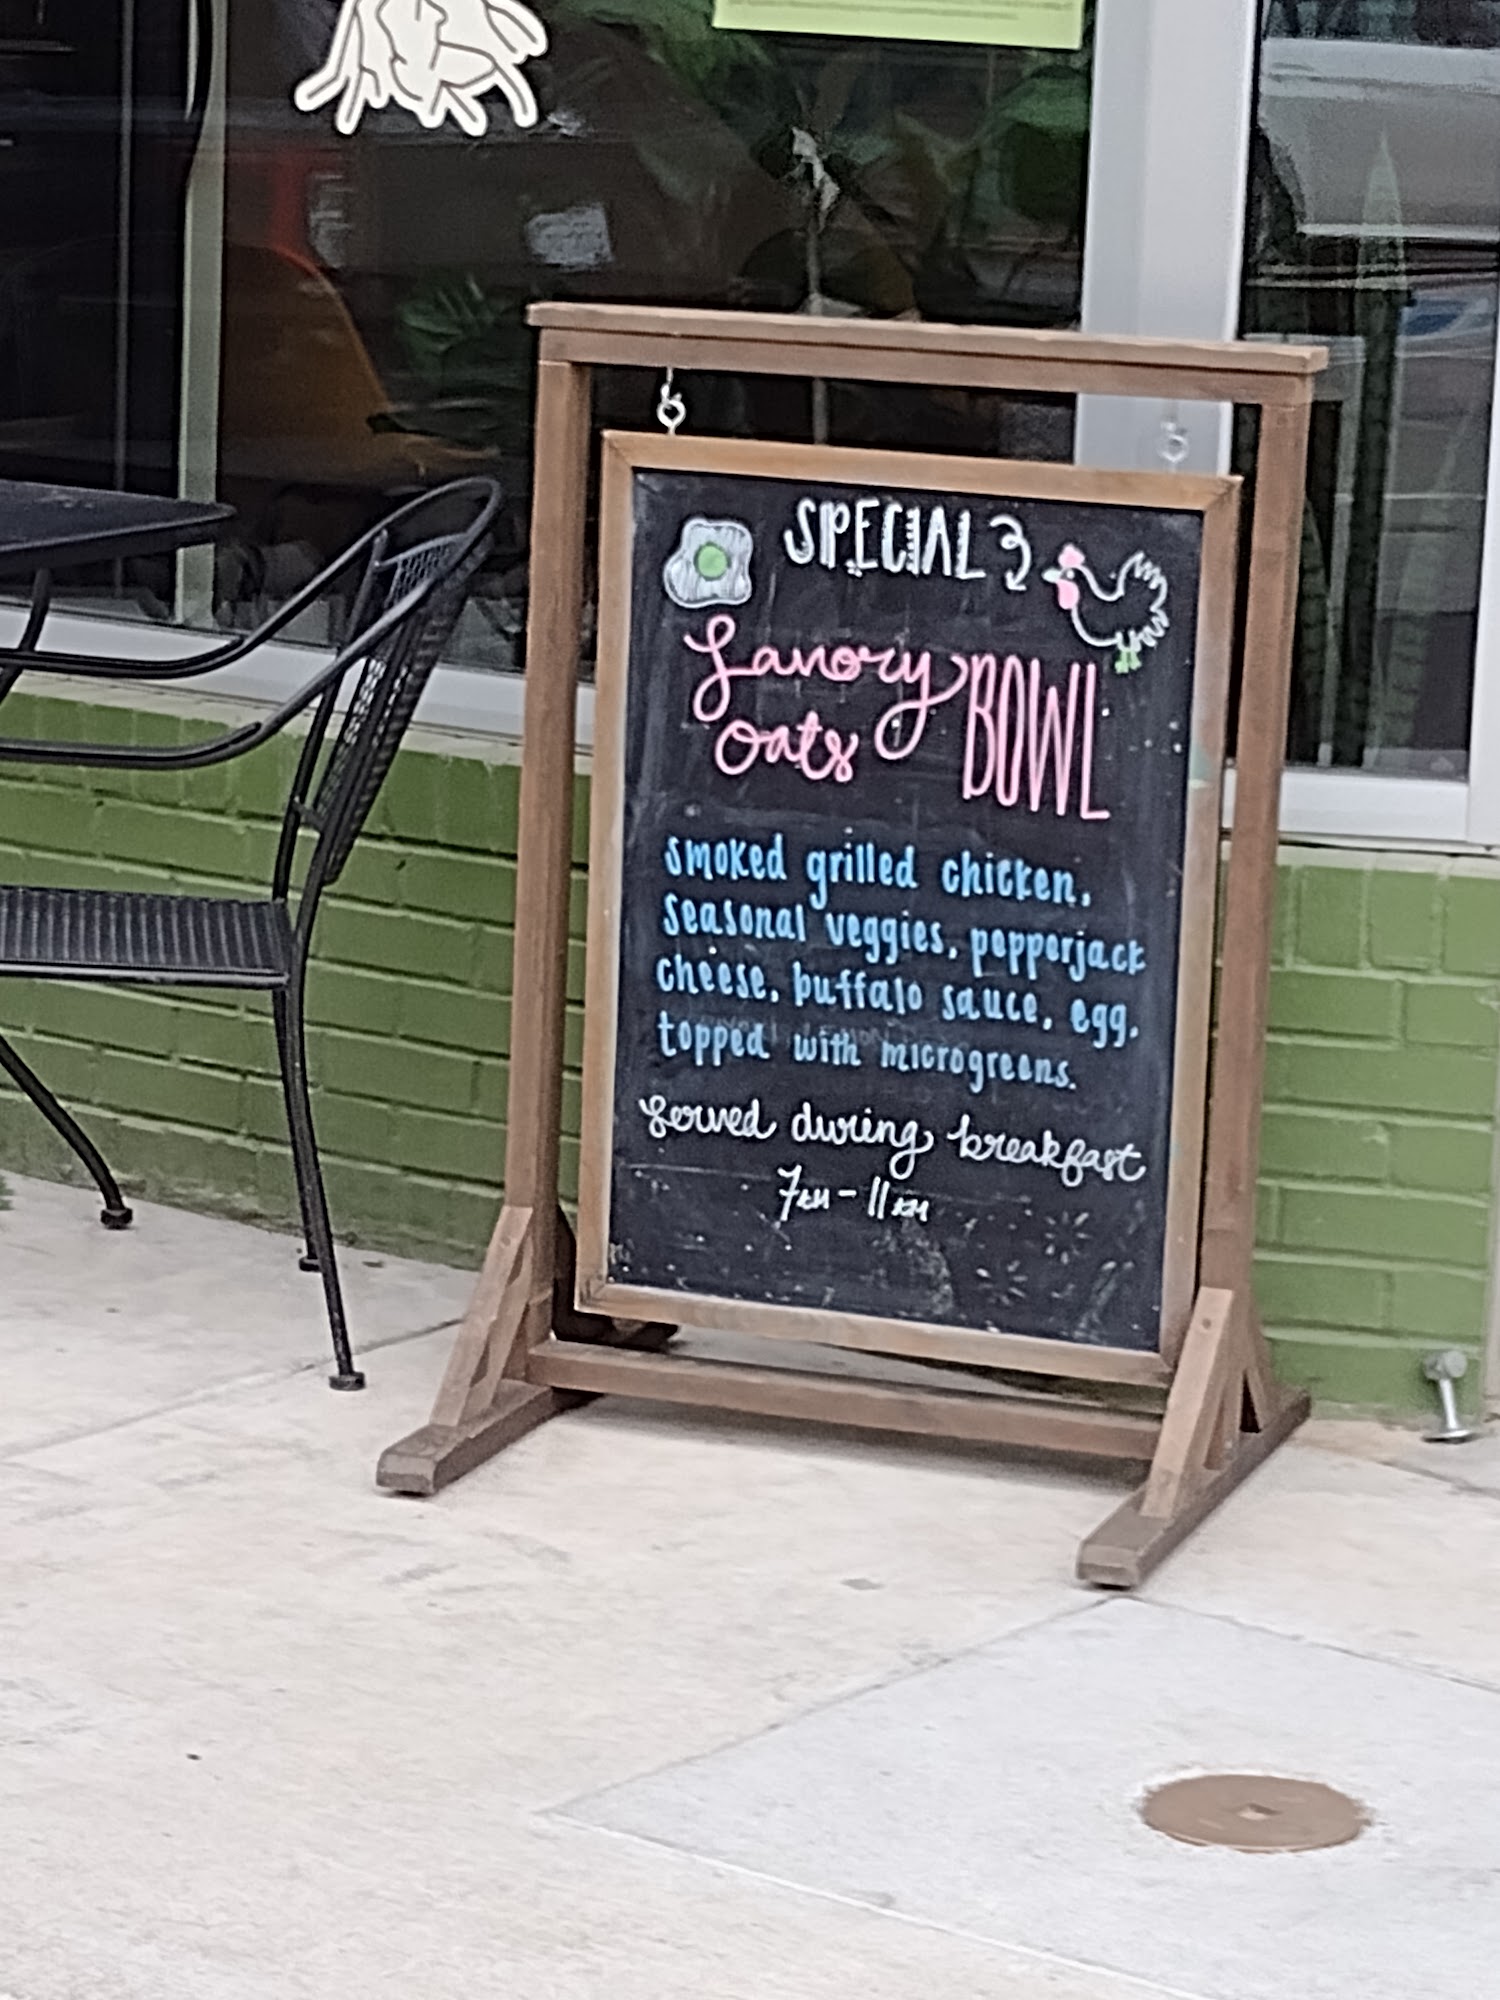 SPECIAL 3
Savory
oats BOWL
smoked grilled chicken,
seasonal veggies, pepperjack
cheese, buffalo sauce, egg,
topped with microgreens.
served during breakfast
7AM - 11AM